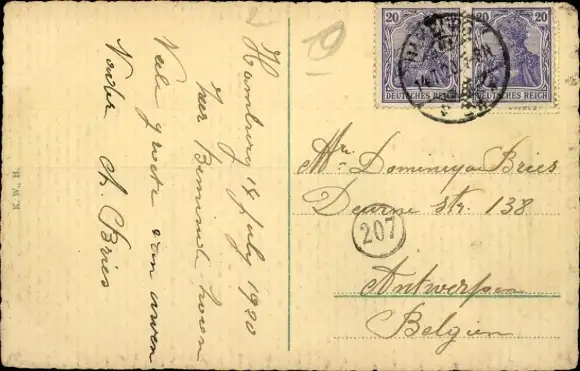 Hamburg 14 July 1920
Zeer Beminde zoon
Vele groete van uwen
Vader A. Bries
R. W. H.
20 20
DEUTSCHES REICH
20 20
DEUTSCHES REICH
Mr. Dominique Bries
Deurne Str. 138
207
Antwerpen
Belgien